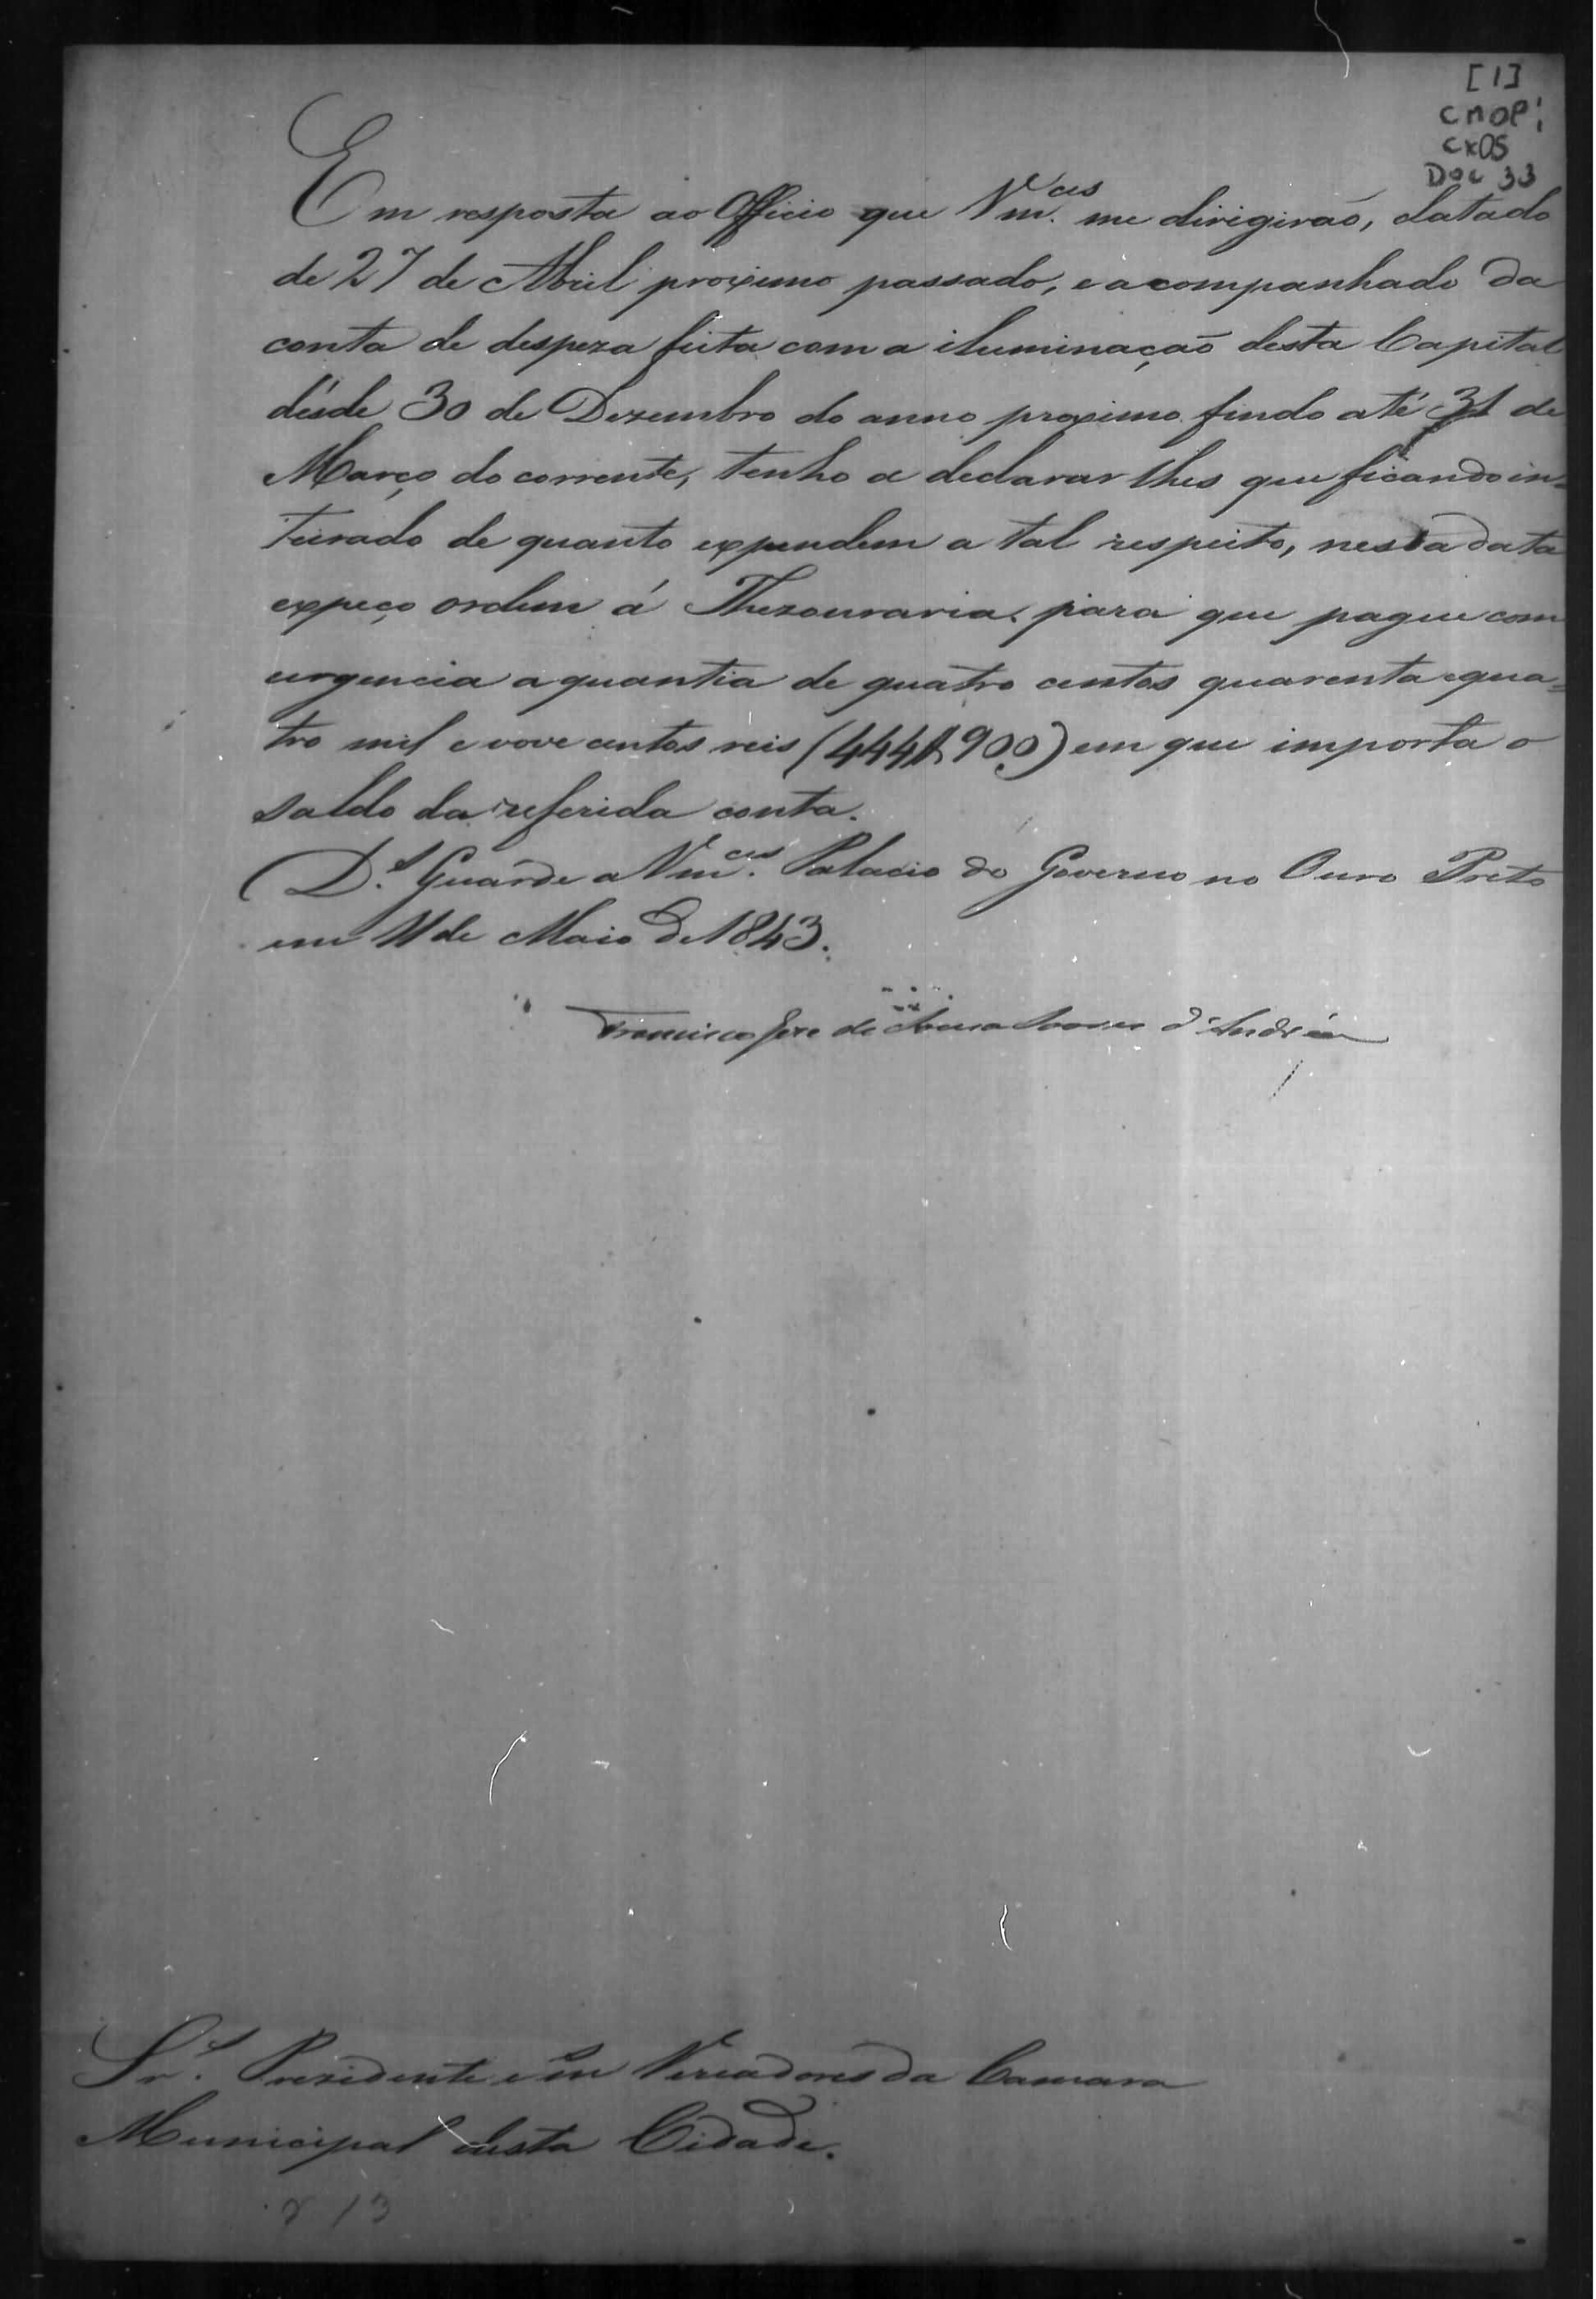 [1]
CMOP;
CX05
DOC 33
Em resposta ao Officio que Vm.ces me dirigirão, datado
de 27 de Abril proximo passado, e acompanhado da
conta de despeza feita com a iluminação desta Capital
désde 30 de Dezembro do anno proximo findo até 31 de
Março do corrente, tenho a declarar lhes que ficando in-
teirado de quanto expendem a tal respeito, nesta data
expeço ordem á Thezouraria para que pague com
urgencia a quantia de quatro centos quarenta e qua=
tro mil e nove centos reis (444$900) em que importa o
saldo da referida conta.
D.s Guarde a Vm.ces Palacio do Governo no Ouro Preto
em 11 de Maio de 1843.
Francisco Joze de Souza Soares d'Andréa
Sr.s Prezidente e Vereadores da Camara
Municipal desta Cidade.